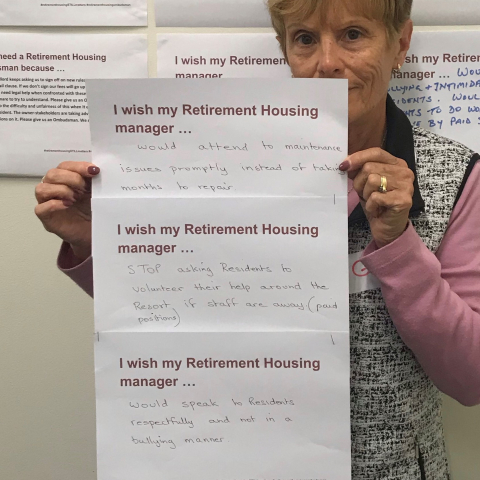 need a Retirement Housing
sman because …
I wish my Retirement Housing
manager
I wish my Retirement
manager
BULLYING + INTIMIDA
SIDENTS. WOUL
NTS TO DO WO
E BY PAID S
I wish my Retirement Housing
manager …
would attend to maintenance
issues promptly instead of taking
months to repair.
I wish my Retirement Housing
manager …
STOP asking Residents to
volunteer their help around the
Resort if staff are away (paid
positions)
I wish my Retirement Housing
manager …
would speak to Residents
respectfully and not in a
bullying manner